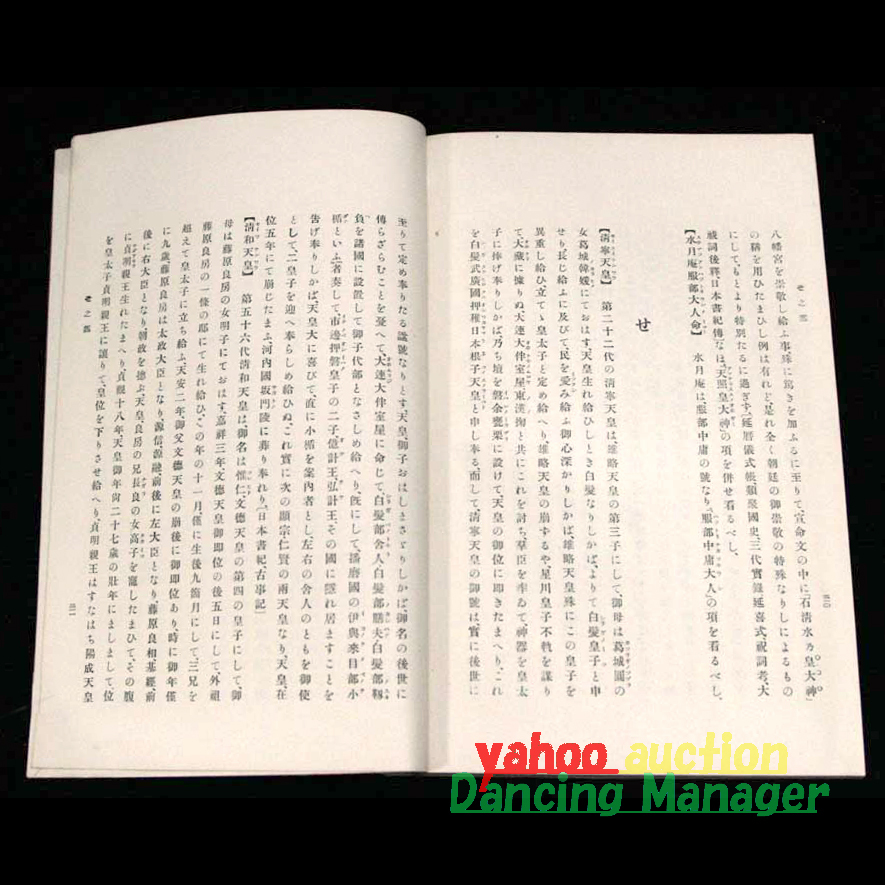 八幡宮を崇敬し給ふ事殊に篤きを加ふるに至りて、宣命文の中に「石淸水乃皇大神」
の稱を用ひたまひし例は有れど、是れ全く朝廷の御崇敬の特殊なりしによるもの
にして、もとより特別たるに過ぎず、〔延曆儀式帳類聚國史、三代實錄延喜式、祝詞考、大
祓詞後釋日本書紀傳〕なほ、「天照皇大神」の項を併せ看るべし。
【水月庵服部大人命】 水月庵は、服部中庸の號なり、「服部中庸大人」の項を看るべし。
せ
【淸寧天皇】 第二十二代の淸寧天皇は、雄略天皇の第三子にして、御母は葛城圓の
女葛城韓媛にておはす、天皇生れ給ひしとき白髮なりしかば、よりて白髮皇子と申
せり、長じ給ふに及びて民を愛み給ふ御心深かりしかば、雄略天皇殊にこの皇子を
異重し給ひ立てゝ皇太子と定め給へり、雄略天皇の崩ずるや、星川皇子不軌を謀り
て、大藏に據りぬ、大連大伴室屋東漢掬と共にこれを討ち、羣臣を率ゐて神器を皇太
子に捧げ奉りしかば、乃ち壇を磐余甕栗に設けて天皇の御位に卽きたまへり、これ
を白髮武廣國押稚日本根子天皇と申し奉る、而して、淸寧天皇の御號は、實に後世に
せ之部
至りて定め奉りたる諡號なりとす、天皇、御子おはしまさゞりしかば、御名の後世に
傳らざらむことを憂へて、大連大伴室屋に命じて、白髮部舍人白髮部膳夫、白髮部靱
負を諸國に設置して御子代部となさしめ給へり、旣にして、播磨國の伊與來目部小
楯といふ者奏して市邊押磐皇子の二子億計王弘計王、その國に隱れ居ますことを
告げ奉りしかば、天皇大に喜びて、直に小楯を案內者とし、左右の舍人のともを御使
として、二皇子を迎へ奉らしめ給ひぬ、これ實に次の顯宗仁賢の兩天皇なり、天皇、在
位五年にて崩じたまふ、河內國坂門陵に葬り奉れり、〔日本書紀古事記〕
【淸和天皇】 第五十六代淸和天皇は、御名は惟仁、文德天皇の第四の皇子にして、御
母は藤原良房の女明子にておはす、嘉祥三年文德天皇御卽位の後五日にして、外祖
藤原良房の一條の邸にて生れ給ひ、この年の十一月、僅に生後九箇月にして、三兄を
超えて皇太子に立ち給ふ、天安二年、御父文德天皇の崩後に御卽位あり、時に御年僅
に九歲、藤原良房は太政大臣となり、源信、源融、前後に左大臣となり、藤原良相、基經、前
後に右大臣となり、朝政を德ぶ、天皇、良房の兄長良の女高子を寵したまひて、その腹
に貞明親王生れたまへり、貞觀十八年、天皇御年尙二十七歲の壯年にましまして、位
を皇太子貞明親王に讓りて、皇位を下りさせ給へり、貞明親王はすなはち陽成天皇
yahoo auction
Dancing Manager